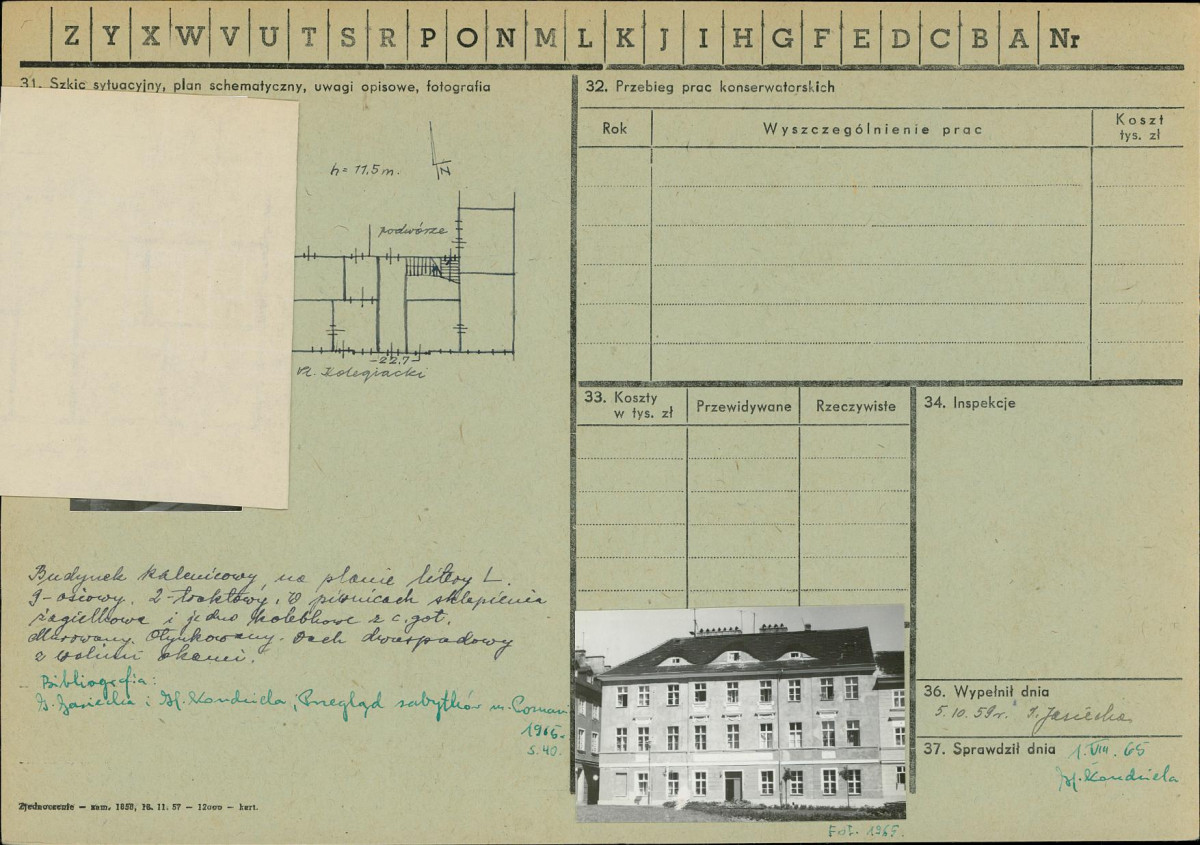 Z Y X W V U T S R P O N M L K J I H G F E D C B A Nr
31. Szkic sytuacyjny, plan schematyczny, uwagi opisowe, fotografia
h = 11,5 m.
N
podwórze
-22,7-
Pl. Kolegiacki
Budynek kalenicowy, na planie litery L.
9-osiowy. 2-traktowy. W piwnicach sklepienia
żagielkowe i jedno kolebkowe z c. got.
Murowany. Otynkowany. Dach dwuspadowy
z wolimi okami.
Bibliografia:
I. Jasiecka i Hf. Kondziela, Przegląd zabytków m. Poznani
1965.
s. 40.
Zjednoczenie – zam. 1858, 16. 11. 57 – 12000 – kart.
32. Przebieg prac konserwatorskich
Rok
Wyszczególnienie prac
Koszt
tys. zł
33. Koszty
w tys. zł
Przewidywane
Rzeczywiste
34. Inspekcje
36. Wypełnił dnia
5.10.59 r. I. Jasiecka
37. Sprawdził dnia 1.VIII.65
Hf. Kondziela
Fot. 1965.